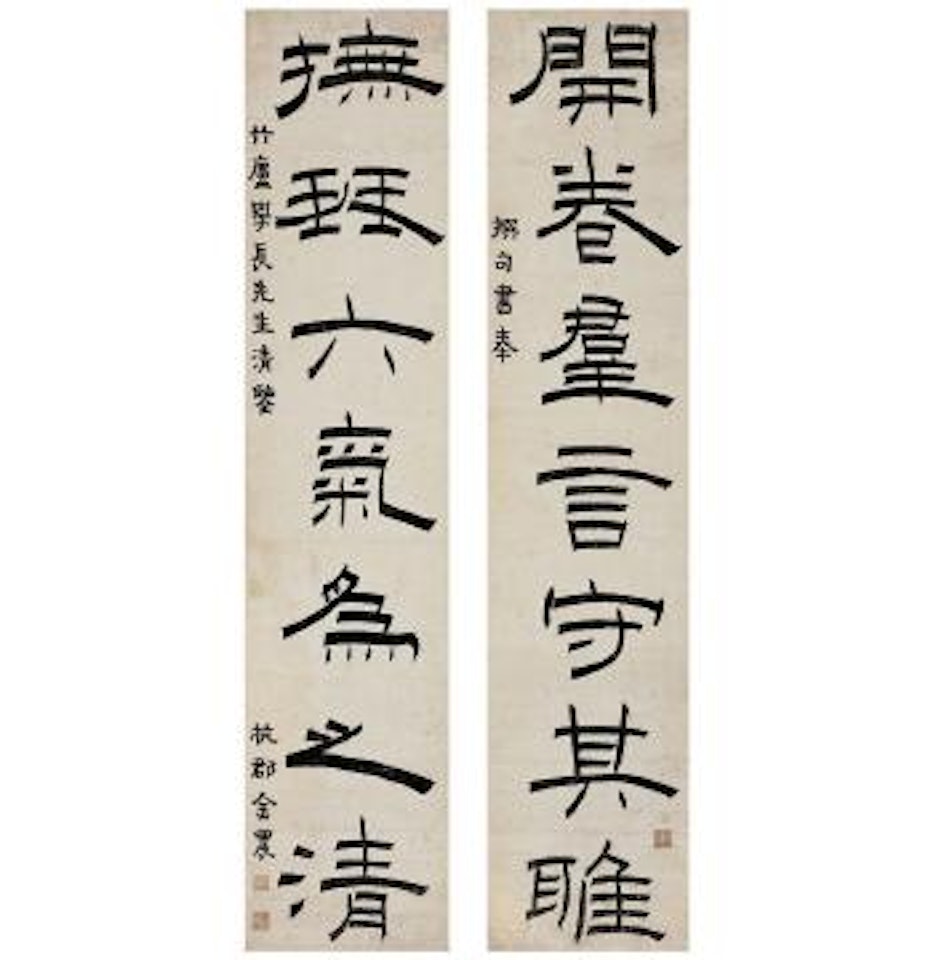 開卷羣言守其雅
撰句書奉
撫琴六氣為之清
竹廬學長先生清鑒
杭郡金農